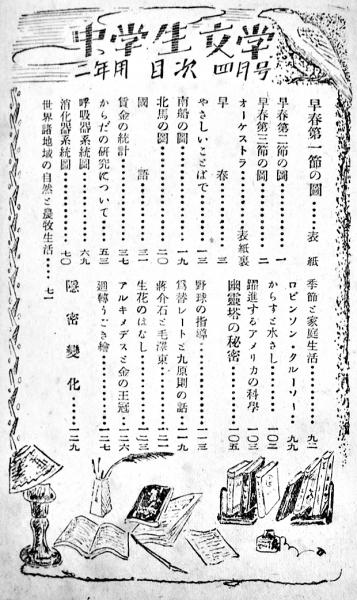 中学生文学
二年用 目次 四月号
早春第一節の圖……表紙
早春第二節の圖……一
早春第三節の圖……二
オーケストラ……表紙裏
早春……三
やさしいことばで……一三
南船の圖……一九
北馬の圖……二〇
國語……三一
賃金の統計……三七
からだの研究について……五三
呼吸器系統圖……六九
消化器系統圖……七〇
世界諸地域の自然と農牧生活……七一
季節と家庭生活……九二
ロビンソン・クルーソー……九九
からすと水さし……一〇二
躍進するアメリカの科學……一〇三
幽靈塔の秘密……一〇五
野球の指導……一一三
爲替レートと九原則の話……一一九
蔣介石と毛澤東……一二一
生花のはなし……一二三
アルキメデスと金の王冠……一二六
廻轉うごき繪……一二七
隱密變化……一二九